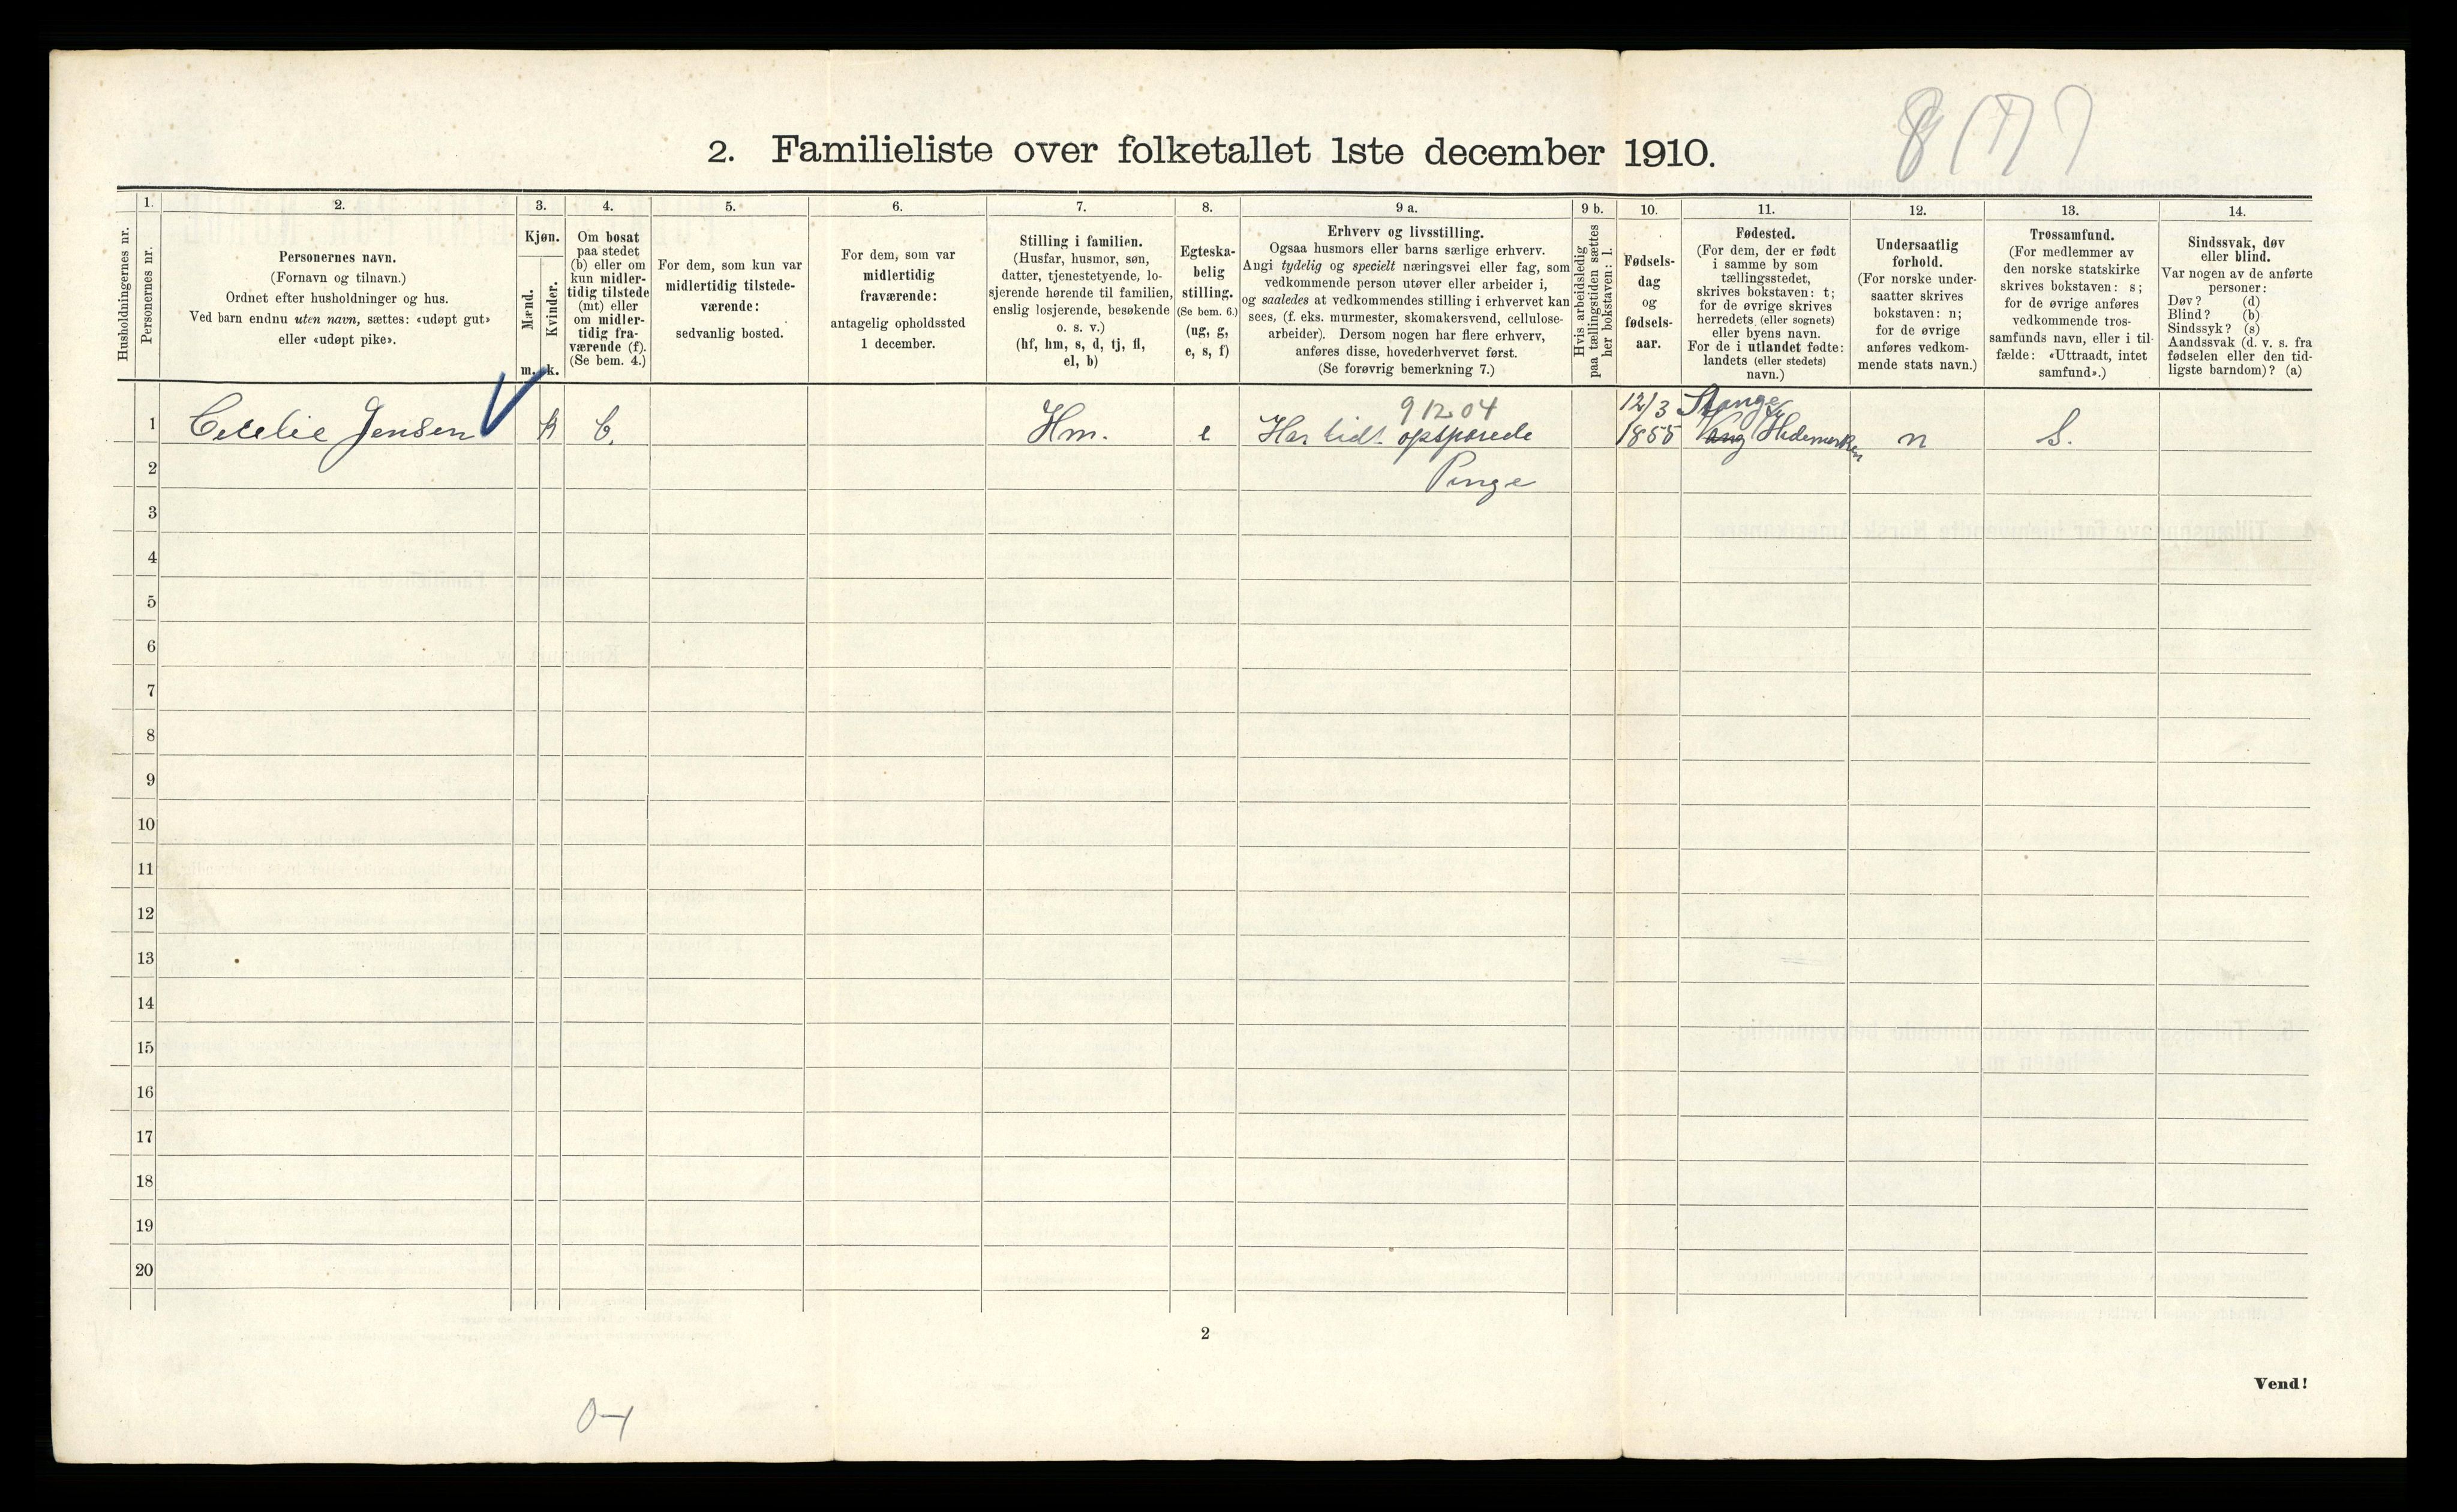 2. Familieliste over folketallet 1ste december 1910.
Husholdningernes nr.
1.
Personernes nr.
2.
Personernes navn.
(Fornavn og tilnavn.)
Ordnet efter husholdninger og hus.
Ved barn endnu uten navn, sættes: «udøpt gut»
eller «udøpt pike».
3.
Kjøn.
Mænd.
Kvinder.
m. k.
4.
Om bosat
paa stedet
(b) eller om
kun midler-
tidig tilstede
(mt) eller
om midler-
tidig fra-
værende (f).
(Se bem. 4.)
5.
For dem, som kun var
midlertidig tilstede-
værende:
sedvanlig bosted.
6.
For dem, som var
midlertidig
fraværende:
antagelig opholdssted
1 december.
7.
Stilling i familien.
(Husfar, husmor, søn,
datter, tjenestetyende, lo-
sjerende hørende til familien,
enslig losjerende, besøkende
o. s. v.)
(hf, hm, s, d, tj, fl,
el, b)
8.
Egteska-
belig
stilling.
(Se bem. 6.)
(ug, g,
e, s, f)
9 a.
Erhverv og livsstilling.
Ogsaa husmors eller barns særlige erhverv.
Angi tydelig og specielt næringsvei eller fag, som
vedkommende person utøver eller arbeider i,
og saaledes at vedkommendes stilling i erhvervet kan
sees, (f. eks. murmester, skomakersvend, cellulose-
arbeider). Dersom nogen har flere erhverv,
anføres disse, hovederhvervet først.
(Se forøvrig bemerkning 7.)
9 b.
Hvis arbeidsledig
paa tællingstiden sættes
her bokstaven: l.
10.
Fødsels-
dag
og
fødsels-
aar.
11.
Fødested.
(For dem, der er født
i samme by som
tællingsstedet,
skrives bokstaven: t;
for de øvrige skrives
herredets (eller sognets)
eller byens navn.
For de i utlandet fødte:
landets (eller stedets)
navn.)
12.
Undersaatlig
forhold.
(For norske under-
saatter skrives
bokstaven: n;
for de øvrige
anføres vedkom-
mende stats navn.)
13.
Trossamfund.
(For medlemmer av
den norske statskirke
skrives bokstaven: s;
for de øvrige anføres
vedkommende tros-
samfunds navn, eller i til-
fælde: «Uttraadt, intet
samfund».)
14.
Sindssvak, døv
eller blind.
Var nogen av de anførte
personer:
Døv? (d)
Blind? (b)
Sindssyk? (s)
Aandssvak (d. v. s. fra
fødselen eller den tid-
ligste barndom)? (a)
9 12 04 12/3 Stange
1 Cecelie Jensen k b. Hm. e Har lidt opsparede 1855 Vang Hedemarken n S.
2 Penge
3
4
5
6
7
8
9
10
11
12
13
14
15
16
17
18
19
20
2
Vend!
0-1